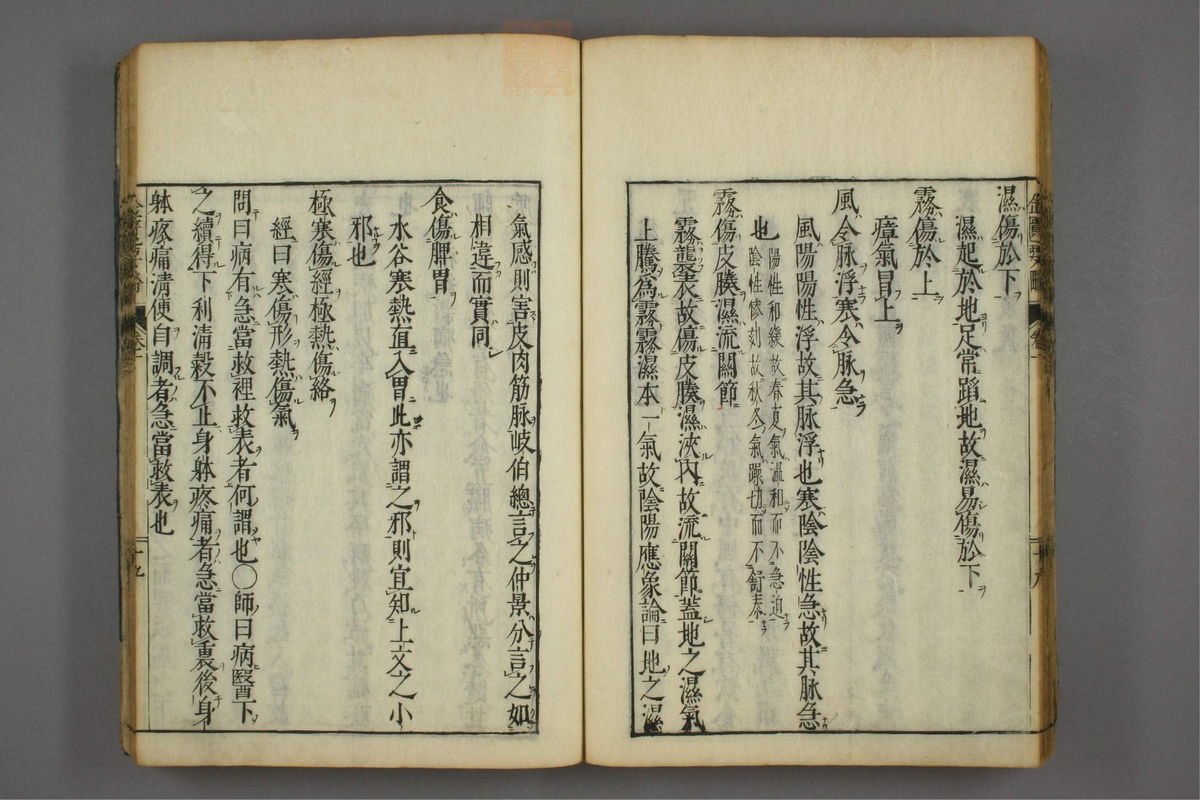 濕傷於下
濕起於地足常蹈地故濕易傷於下
霧傷於上
瘴氣冒上
風令脉浮寒令脉急
風陽陽性浮故其脉浮也寒陰陰性急故其脉急
也陽性和緩故春夏氣温和而不急迫
陰性慘刻故秋冬氣躁切而不舒泰
霧傷皮腠濕流關節
霧襲表故傷皮腠濕浹内故流關節蓋地之濕氣
上騰爲霧霧濕本一氣故陰陽應象論曰地之濕
氣感則害皮肉筋脉岐伯總言之仲景分言之如
相違而實同
食傷脾胃
水谷寒熱直入胃此亦謂之邪則宜知上文之小
邪也
極寒傷經極熱傷絡
經曰寒傷形熱傷氣
問曰病有急當救裡救表者何謂也○師曰病醫下
之續得下利清穀不止身躰疼痛者急當救裏後身
躰疼痛清便自調者急當救表也
十九